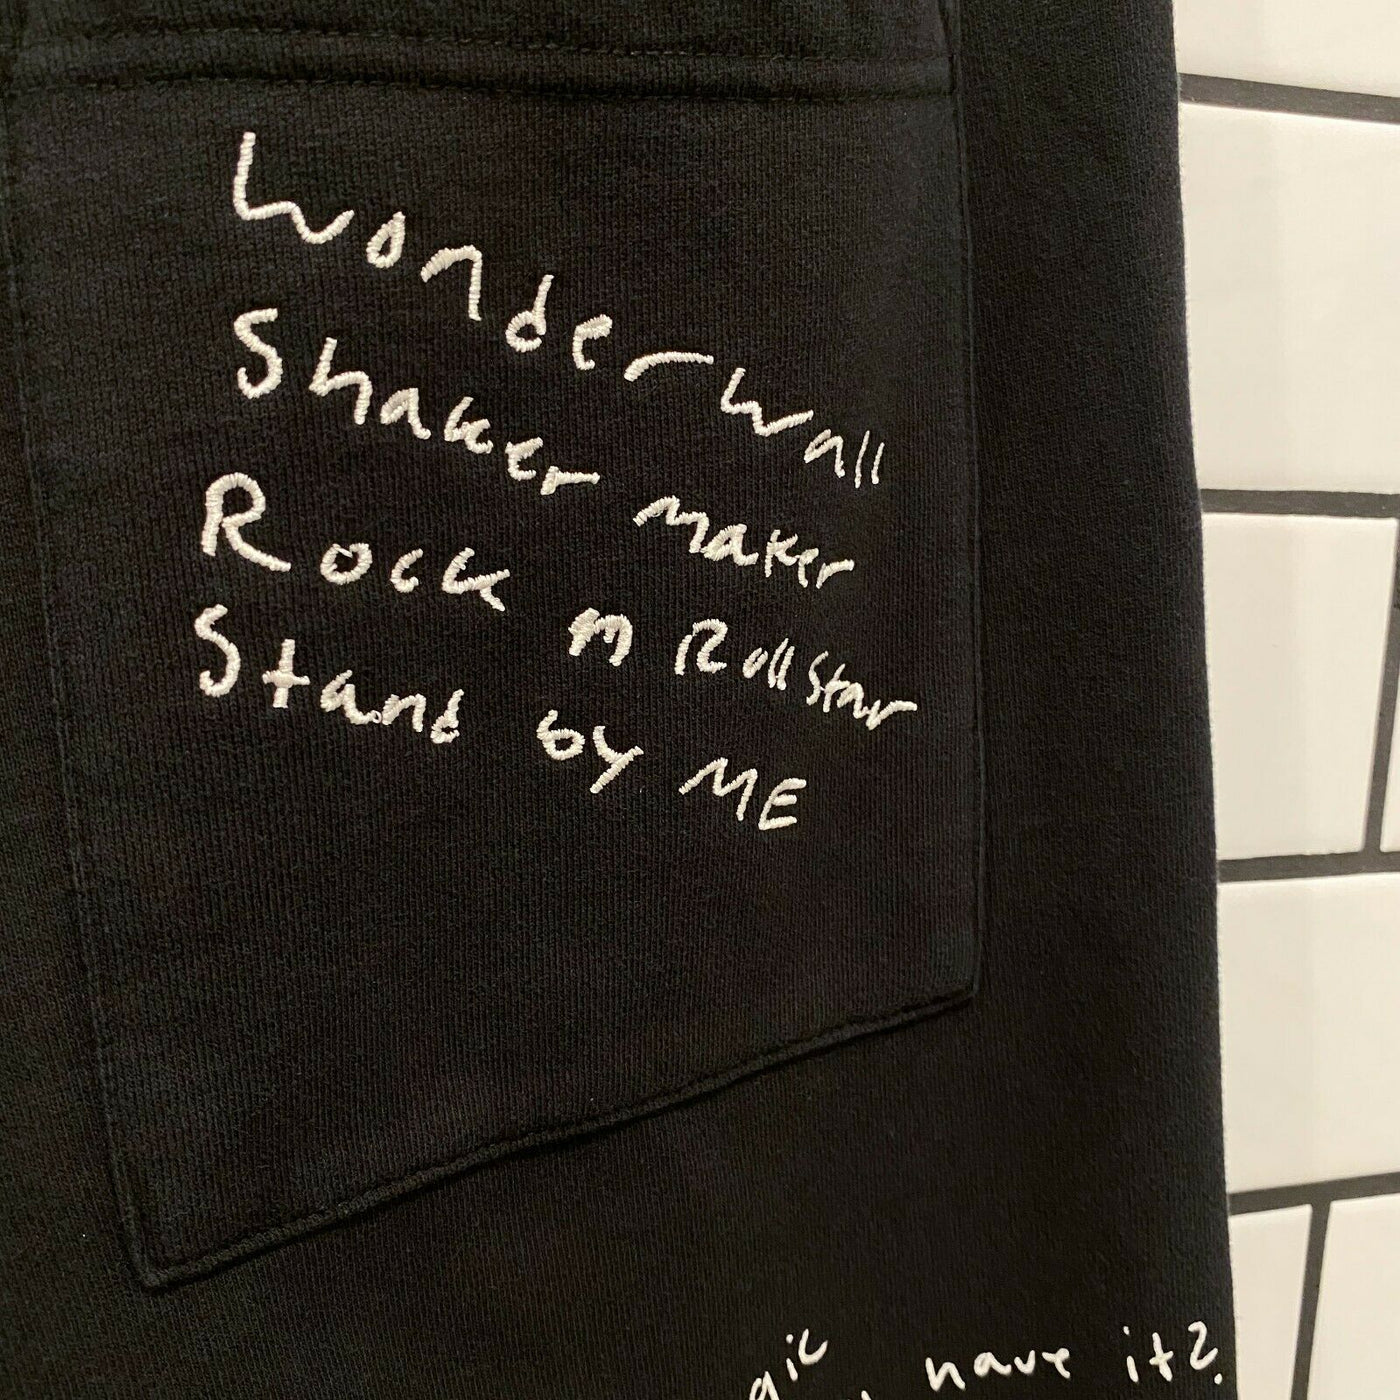 Wonderwall
Shaker maker
Rock n Roll Star
Stand by ME
have it?